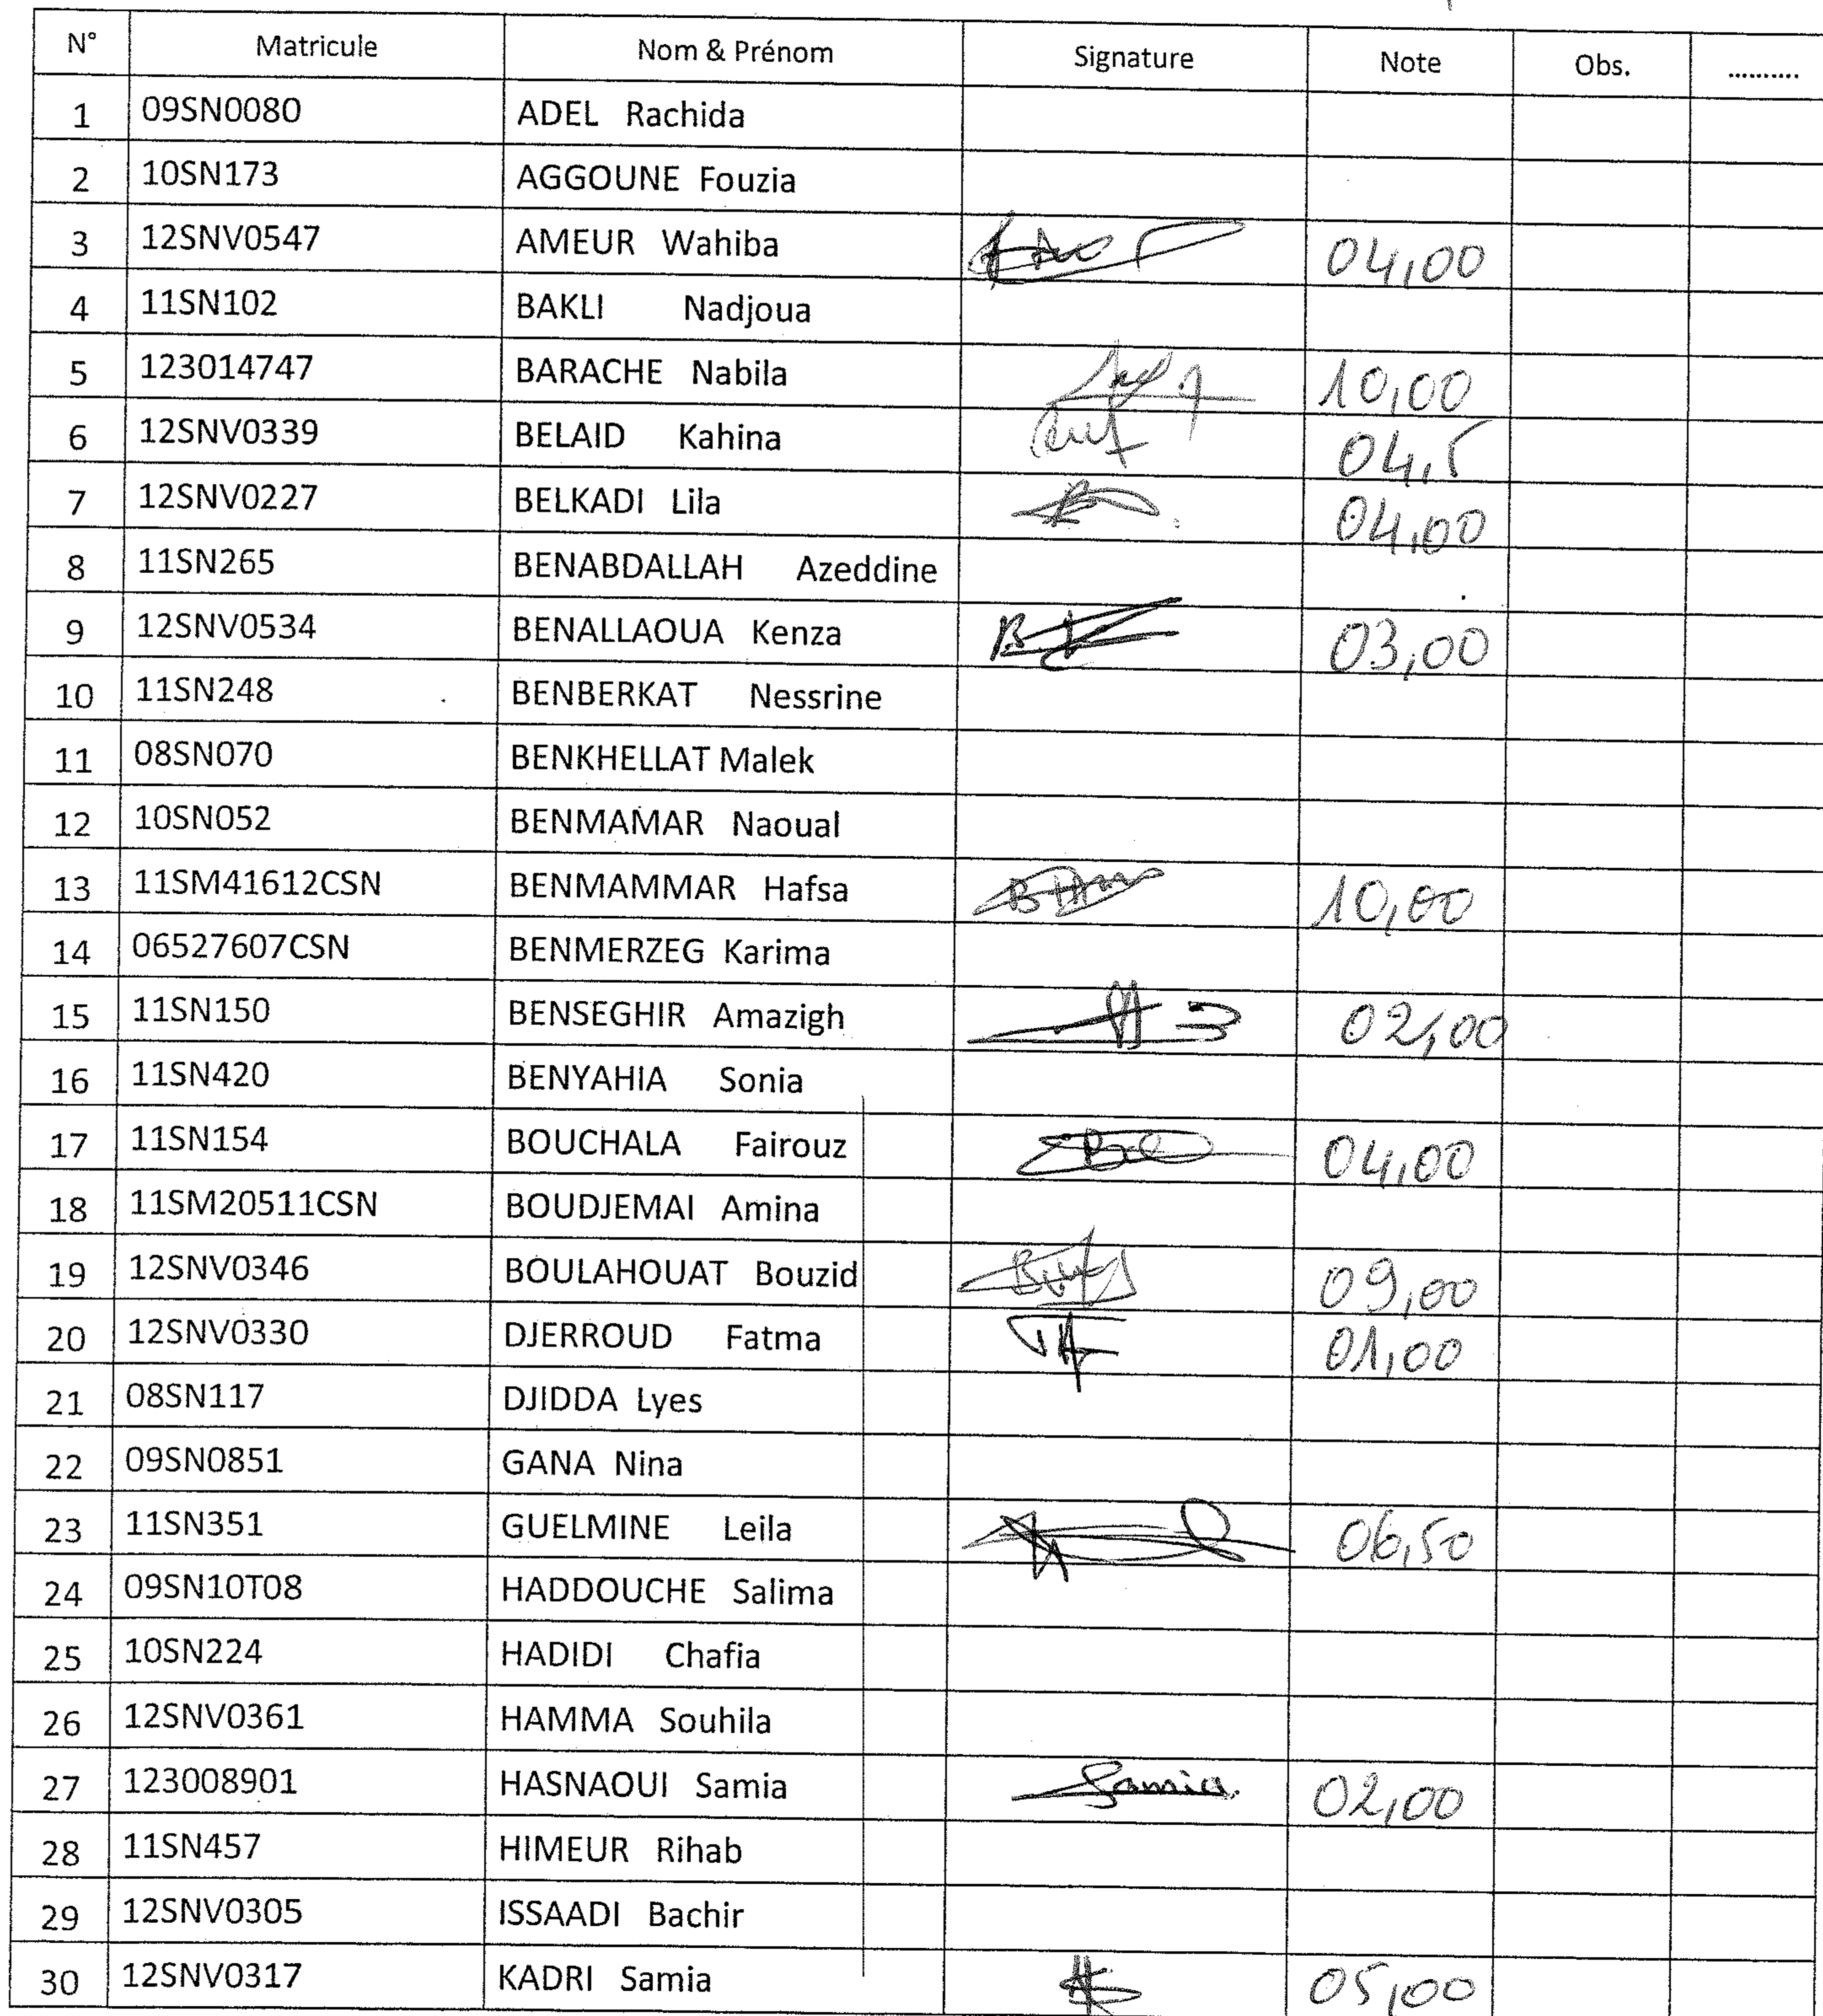 N° Matricule Nom & Prénom Signature Note Obs. ..........
1 09SN0080 ADEL Rachida
2 10SN173 AGGOUNE Fouzia
3 12SNV0547 AMEUR Wahiba 04,00
4 11SN102 BAKLI Nadjoua
5 123014747 BARACHE Nabila 10,00
6 12SNV0339 BELAID Kahina 04,5
7 12SNV0227 BELKADI Lila 04,00
8 11SN265 BENABDALLAH Azeddine
9 12SNV0534 BENALLAOUA Kenza 03,00
10 11SN248 BENBERKAT Nessrine
11 08SN070 BENKHELLAT Malek
12 10SN052 BENMAMAR Naoual
13 11SM41612CSN BENMAMMAR Hafsa 10,00
14 06527607CSN BENMERZEG Karima
15 11SN150 BENSEGHIR Amazigh 02,00
16 11SN420 BENYAHIA Sonia
17 11SN154 BOUCHALA Fairouz 04,00
18 11SM20511CSN BOUDJEMAI Amina
19 12SNV0346 BOULAHOUAT Bouzid 09,00
20 12SNV0330 DJERROUD Fatma 01,00
21 08SN117 DJIDDA Lyes
22 09SN0851 GANA Nina
23 11SN351 GUELMINE Leila 06,50
24 09SN10T08 HADDOUCHE Salima
25 10SN224 HADIDI Chafia
26 12SNV0361 HAMMA Souhila
27 123008901 HASNAOUI Samia Samia 02,00
28 11SN457 HIMEUR Rihab
29 12SNV0305 ISSAADI Bachir
30 12SNV0317 KADRI Samia 05,00